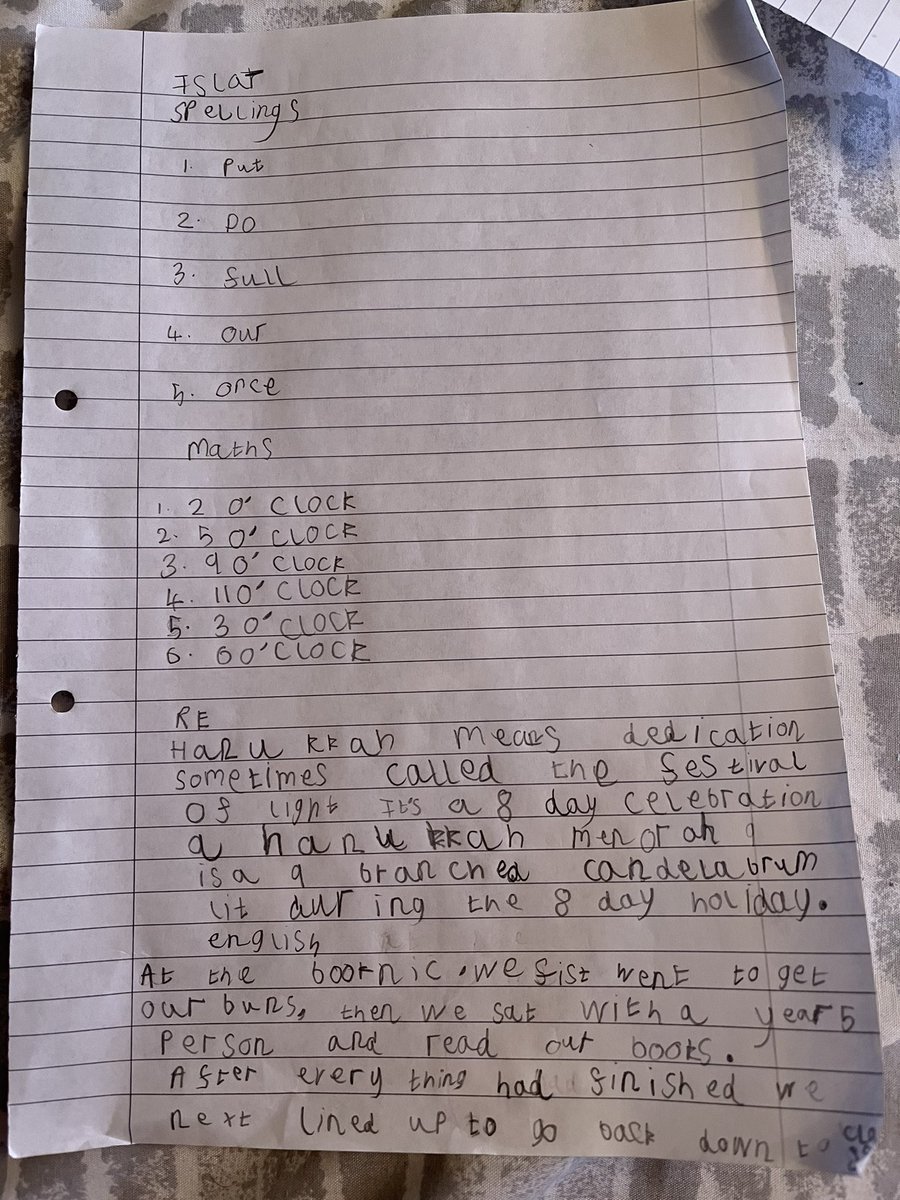 ISLAT
Spellings
1. Put
2. DO
3. full
4. our
5. once
Maths
1. 2 O' CLOCK
2. 5 O' CLOCK
3. 9 O' CLOCK
4. 11 O' CLOCK
5. 3 O' CLOCK
6. 6 O' CLOCK
RE
Hanukkah means dedication
sometimes called the festival
of light It's a 8 day celebration
a hanukkah menorah
is a 9 branched candelabrum
lit during the 8 day holiday.
english
At the booknic. we fist went to get
our buns, then we sat with a year 5
Person and read our books.
After every thing had finished we
next lined up to go back down to